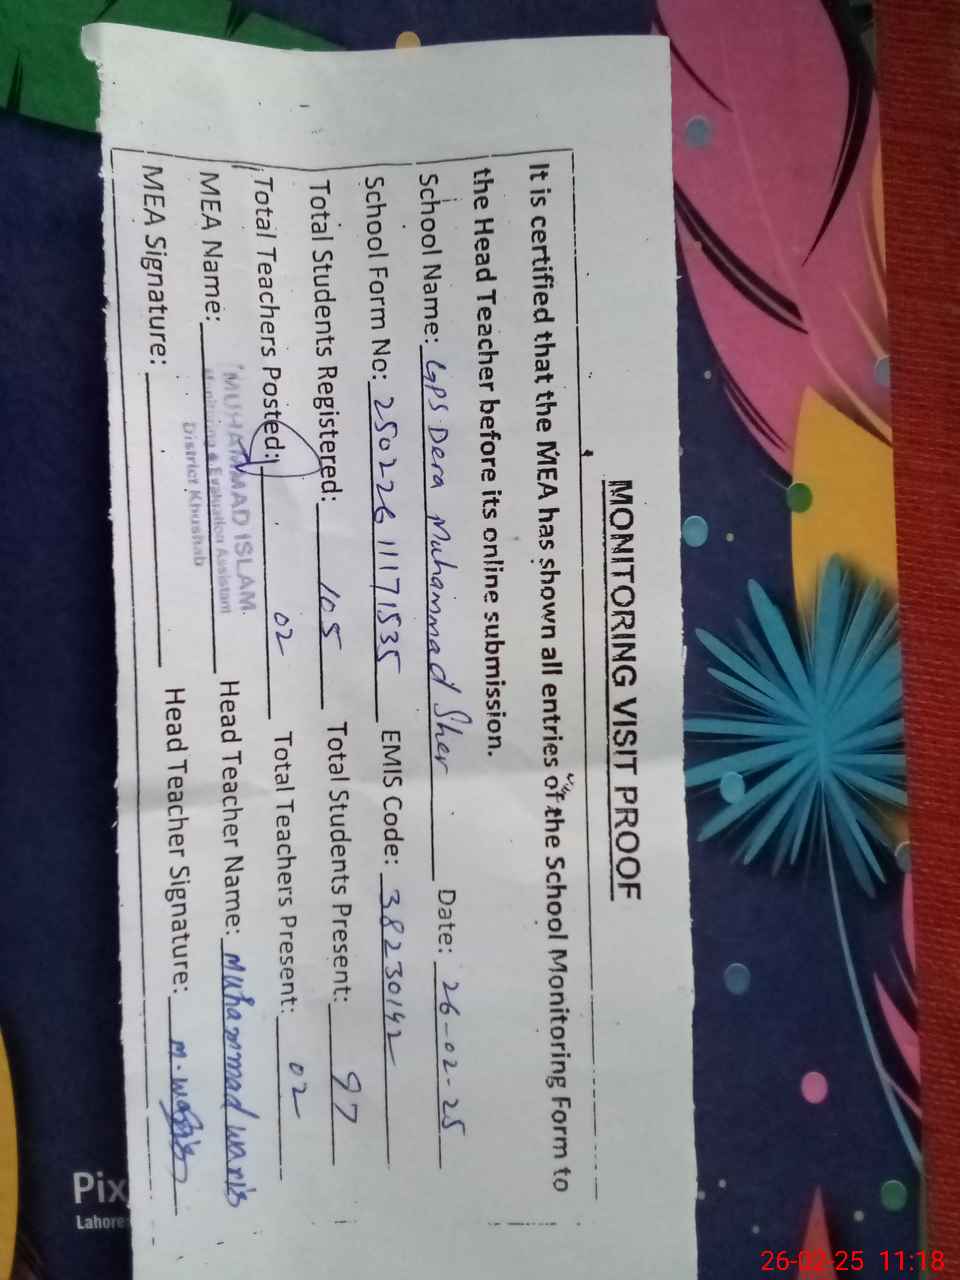 MONITORING VISIT PROOF
It is certified that the MEA has shown all entries of the School Monitoring Form to
the Head Teacher before its online submission.
School Name: GPS Dera Muhammad Sher Date: 26-02-25
School Form No: 25022611171535 EMIS Code: 38230142
Total Students Registered: 105 Total Students Present: 97
Total Teachers Posted: 02 Total Teachers Present: 02
MEA Name: MUHAMMAD ISLAM Head Teacher Name: Muhammad Waris
Monitoring & Evaluation Assistant
District Khushab
MEA Signature: Head Teacher Signature: M. Waris
Pix
Lahore
26-02-25 11:18